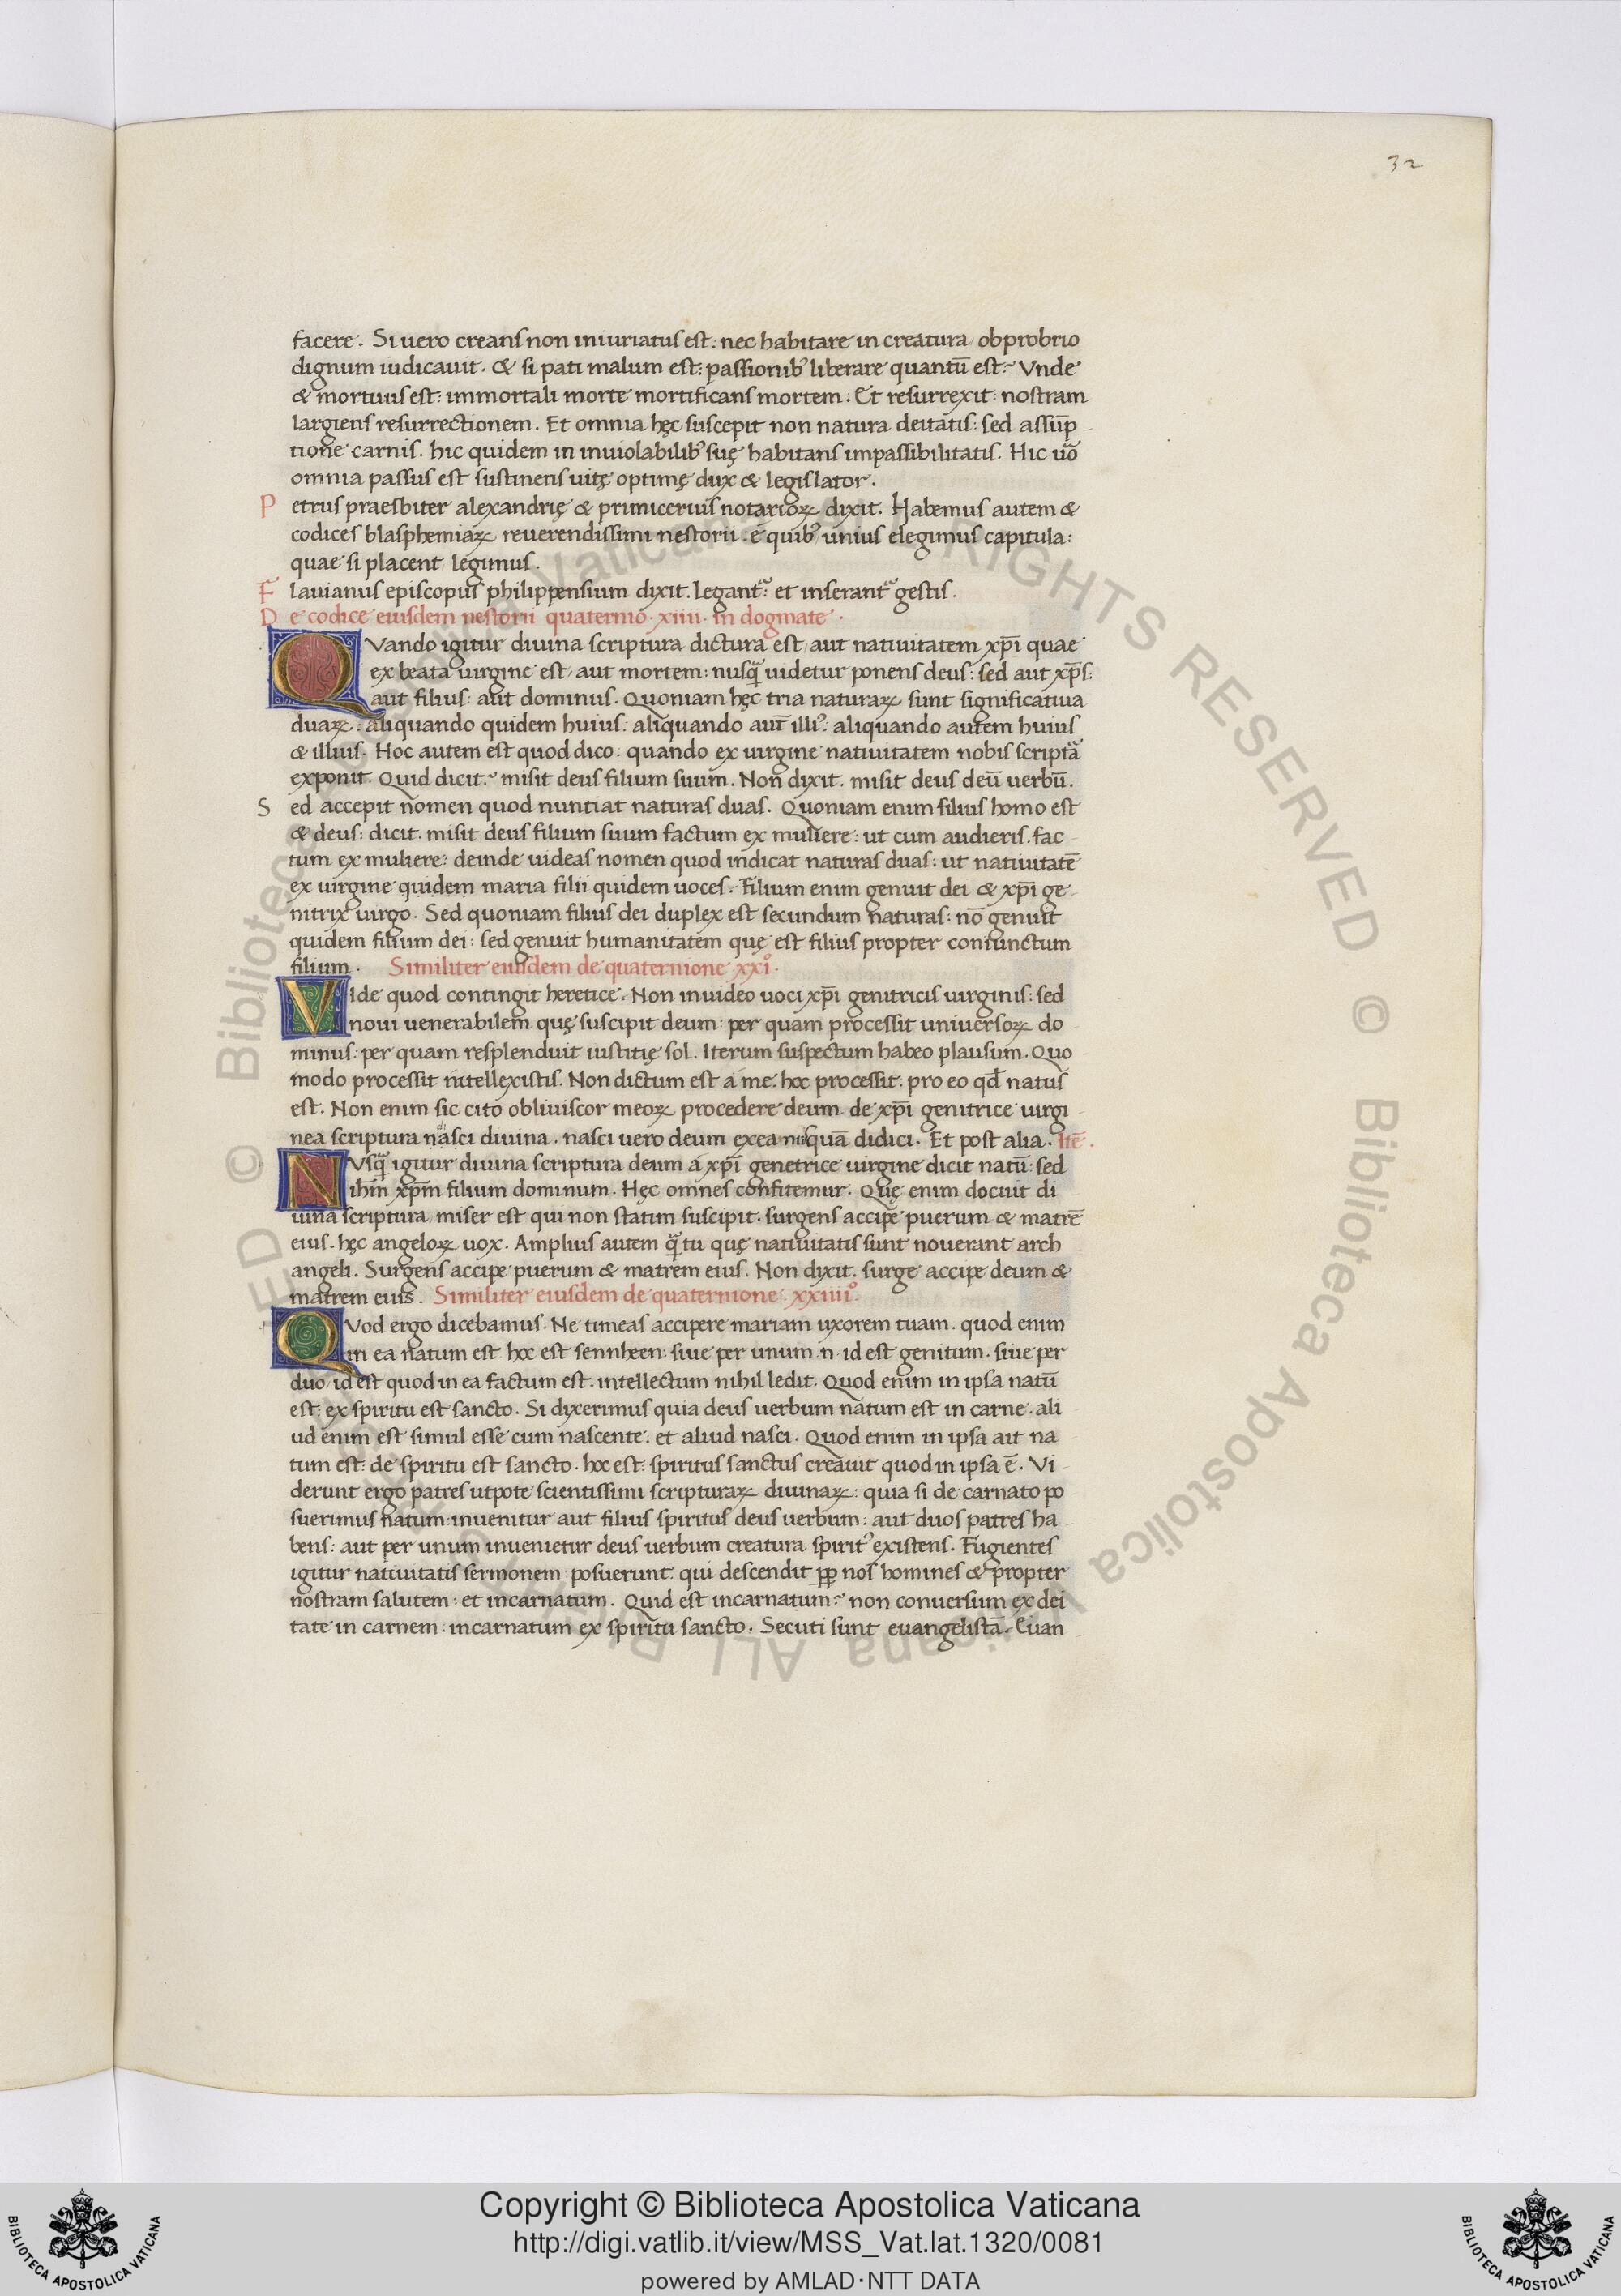 32
facere. Si uero creans non iniuriatus est. nec habitare in creatura obprobrio
dignum iudicauit. & si pati malum est: passionib' liberare quantū est? Vnde
& mortuus est: immortali morte mortificans mortem. Et resurrexit: nostram
largiens resurrectionem. Et omnia hęc suscepit non natura deitatis: sed assūp
tione carnis. hic quidem in inuiolabilib' suę habitans impassibilitatis. Hic uo
omnia passus est sustinens uitę optimę dux & legislator.
Petrus praesbiter alexandrię & primicerius notarioꝝ dixit. Habemus autem &
codices blasphemiaꝝ reuerendissimi nestorii. e quib' unius elegimus capitula:
quae si placent legimus.
Flauianus episcopus philippensium dixit. legant᷑: et inserant᷑ gestis.
De codice eiusdem nestorii quaternio. xiiii. in dogmate.
QVando igitur diuina scriptura dictura est, aut natiuitatem xp̄i quae
ex beata uirgine est, aut mortem: nusq̄ uidetur ponens deus: sed aut xp̄s:
aut filius: aut dominus. Quoniam hęc tria naturaꝝ sunt significatiua
duaꝝ: aliquando quidem huius: aliquando aut̄ illi': aliquando autem huius
& illius. Hoc autem est quod dico: quando ex uirgine natiuitatem nobis scriptā
exponit. Quid dicit? misit deus filium suum. Non dixit. misit deus deū uerbū.
Sed accepit nomen quod nuntiat naturas duas. Quoniam enim filius homo est
& deus: dicit. misit deus filium suum factum ex muliere: ut cum audieris. fac
tum ex muliere: deinde uideas nomen quod indicat naturas duas: ut natiuitatē
ex uirgine quidem maria filii quidem uoces. Filium enim genuit dei & xp̄i ge
nitrix uirgo. Sed quoniam filius dei duplex est secundum naturas: nō genuit
quidem filium dei: sed genuit humanitatem quę est filius propter coniunctum
filium. Similiter eiusdem de quaternione xxiº.
VIde quod contingit heretice. Non inuideo uoci xp̄i genitricis uirginis: sed
noui uenerabilem quę suscipit deum: per quam processit uniuersoꝝ do
minus: per quam resplenduit iustitię sol. Iterum suspectum habeo plausum. Quo
modo processit intellexistis. Non dictum est a me. hoc processit. pro eo qđ natus
est. Non enim sic cito obliuiscor meoꝝ procedere deum de xp̄i genitrice uirgi
nea scriptura nasci diuina. nasci uero deum ex ea nusquā didici. Et post alia. Itē.
NVsq̄ igitur diuina scriptura deum a xp̄i genetrice uirgine dicit natū: sed
ihm̄ xp̄m filium dominum. Hęc omnes confitemur. Quę enim docuit di
uina scriptura, miser est qui non statim suscipit. surgens accipe puerum & matrē
eius. hęc angeloꝝ uox. Amplius autem q̄ tu quę natiuitatis sunt nouerant arch
angeli. Surgens accipe puerum & matrem eius. Non dixit. surge accipe deum &
matrem eius. Similiter eiusdem de quaternione xxiiiiº.
QVod ergo dicebamus. Ne timeas accipere mariam uxorem tuam. quod enim
in ea natum est hoc est sennheen: siue per unum .n. id est genitum. siue per
duo, id est quod in ea factum est. intellectum nihil ledit. Quod enim in ipsa natū
est: ex spiritu est sancto. Si dixerimus quia deus uerbum natum est in carne. ali
ud enim est simul esse cum nascente. et aliud nasci. Quod enim in ipsa ait na
tum est: de spiritu est sancto. hoc est: spiritus sanctus creauit quod in ipsa ē. Vi
derunt ergo patres utpote scientissimi scripturaꝝ diuinaꝝ: quia si de carnato po
suerimus natum: inuenitur aut filius spiritus deus uerbum: aut duos patres ha
bens: aut per unum inuenietur deus uerbum creatura spirit' existens. Fugientes
igitur natiuitatis sermonem posuerunt. qui descendit pp̄ nos homines & propter
nostram salutem: et incarnatum. Quid est incarnatum? non conuersum ex dei
tate in carnem. incarnatum ex spiritu sancto. Secuti sunt euangelistā. Euan
© Biblioteca Apostolica Vaticana ALL RIGHTS RESERVED © Biblioteca Apostolica Vaticana ALL RIGHTS RESERVED
BIBLIOTECA APOSTOLICA VATICANA
Copyright © Biblioteca Apostolica Vaticana
http://digi.vatlib.it/view/MSS_Vat.lat.1320/0081
powered by AMLAD·NTT DATA
BIBLIOTECA APOSTOLICA VATICANA